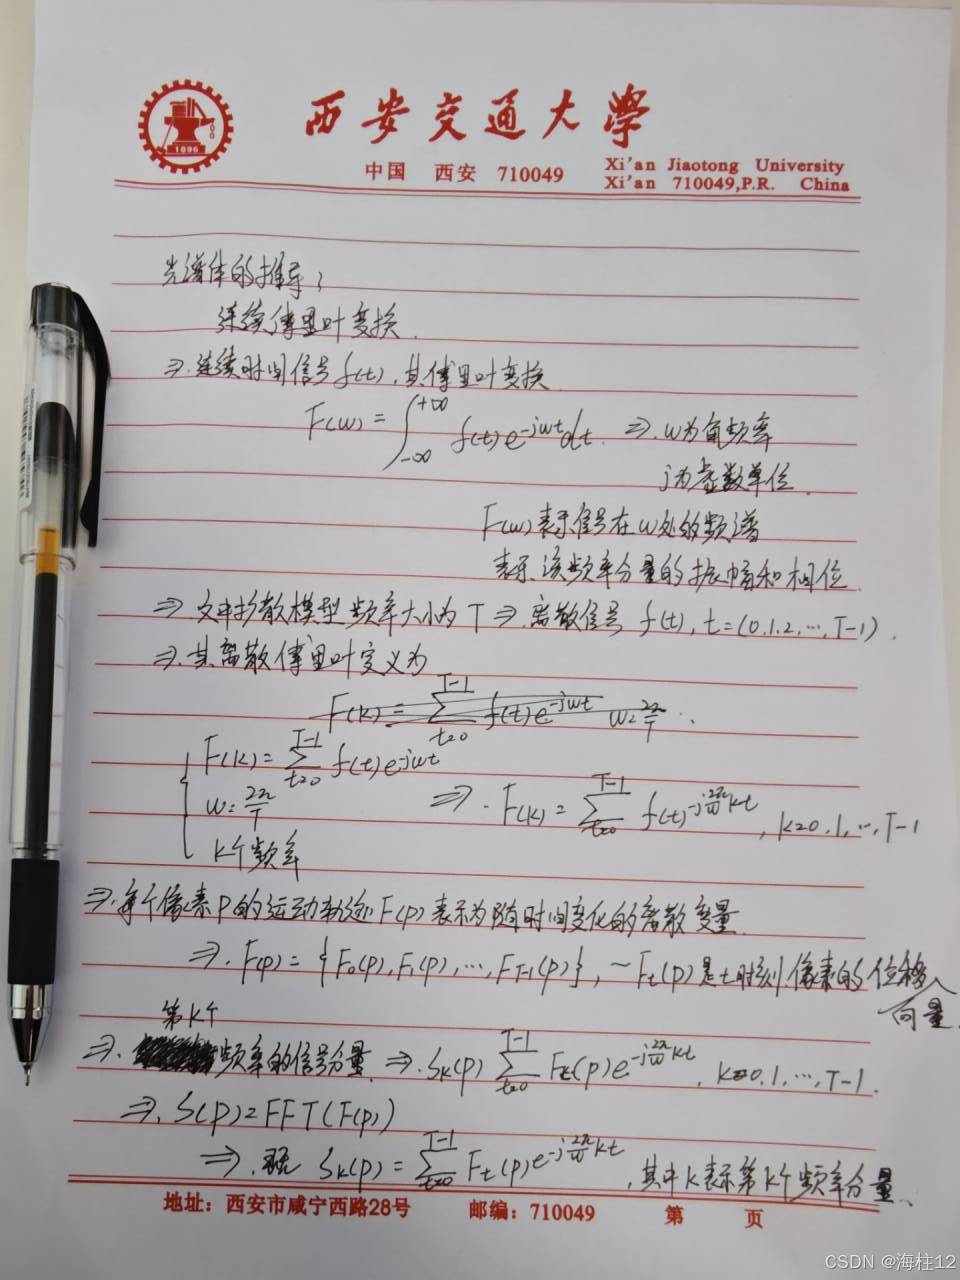 西安交通大學
中国 西安 710049
Xi'an Jiaotong University
Xi'an 710049,P.R. China
1896
光谱体的推导:
连续傅里叶变换.
⇒.连续时间信号f(t),其傅里叶变换
F(w) = ∫_{-∞}^{+∞} f(t)e^{-jwt}dt. ⇒.w为角频率
j为虚数单位.
F(w)表示信号在w处的频谱
表示该频率分量的振幅和相位.
⇒.文中扩散模型频率大小为T ⇒.离散信号 f(t), t=(0,1,2,…,T-1).
⇒.其离散傅里叶定义为
F(k) = Σ_{t=0}^{T-1} f(t)e^{-jwt} w=2π/T
F(k) = Σ_{t=0}^{T-1} f(t)e^{-jwt}
w=2π/T
K个频率
⇒. F(k) = Σ_{t=0}^{T-1} f(t)^{-j2π/w kt}, k=0,1,…,T-1
⇒.每个像素P的运动轨迹F(p)表示为随时间变化的离散变量.
⇒. F(p) = {F₀(p),F₁(p),…,F_{T-1}(p)}, ~ F_t(p)是t时刻像素的位移
向量.
第K个
⇒. 频率的信号分量 ⇒. S_k(p) Σ_{t=0}^{T-1} F_t(p)e^{-j2π/w kt}, k=0,1,…,T-1.
⇒. S(p)=FFT(F(p))
⇒. S_k(p) = Σ_{t=0}^{T-1} F_t(p)e^{-j2π/w kt},其中K表示第K个频率分量.
地址：西安市咸宁西路28号 邮编：710049 第 页
CSDN @海柱12